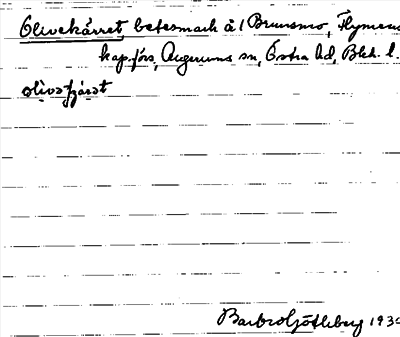 Olivekärret, betesmark å 1 Brunsmo, Flymens
kap.förs, Augerums sn, Östra hd, Blek. l.
Barbro Götleberg 193